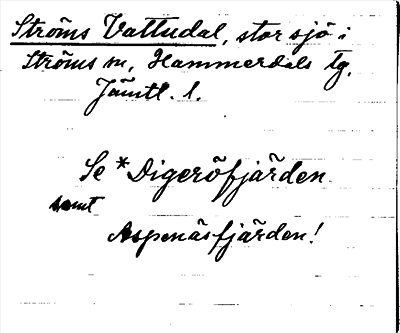 Ströms Vattudal, stor sjö i
Ströms sn, Hammerdals tg,
Jämtl. l.
Se *Digeröfjärden
samt
Aspenäsfjärden!